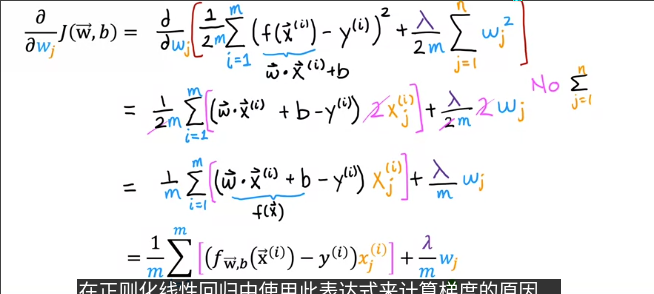 ∂/∂w_j J(w⃗,b) = d/dw_j [ 1/2m Σ_{i=1}^{m} (f(x⃗^(i)) - y^(i))² + λ/2m Σ_{j=1}^{n} w_j² ]
w⃗·x⃗^(i)+b
No Σ_{j=1}^{n}
= 1/2m Σ_{i=1}^{m} [(w⃗·x⃗^(i) + b - y^(i)) 2 x_j^(i)] + λ/2m 2 w_j
= 1/m Σ_{i=1}^{m} [(w⃗·x⃗^(i) + b - y^(i)) x_j^(i)] + λ/m w_j
f(x⃗)
= 1/m Σ^{m} [(f_{w⃗,b}(x⃗^(i)) - y^(i)) x_j^(i)] + λ/m w_j
在正则化线性回归中使用此表达式来计算梯度的原因